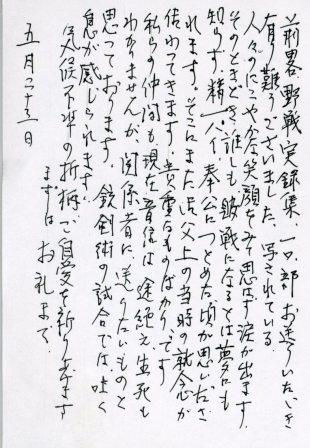 前畧 野戦実録集、一部お送りいたゞき
有り難うございました、写されている
人々のにこやかな笑顔をみて思はず涙が出ます、
そのときどき、誰しも敗戦になるとは夢にも
知らず精一杯、奉公につとめた頃が思いださ
れます。そこにまた御父上の当時の執念が
伝わってきます。貴重なものばかりです
私らの仲間も現在音信は途絶え生死も
わかりませんが、関係者に送りたいものと
思っております。銃剣術の試合では、吐く
息が感じられます、
気候不準の折柄ご自愛を祈りあげます
まずは お礼まで、
五月二十三日